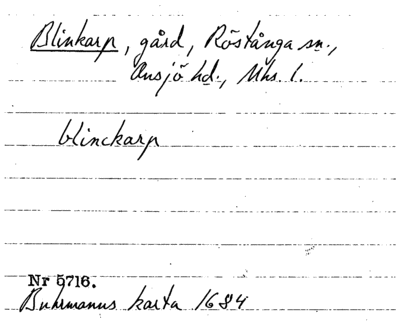 Blinkarp, gård, Röstånga sn.,
Onsjö hd., Mhs. l.
blinckarp
Nr 5716.
Buhrmanns karta 1684